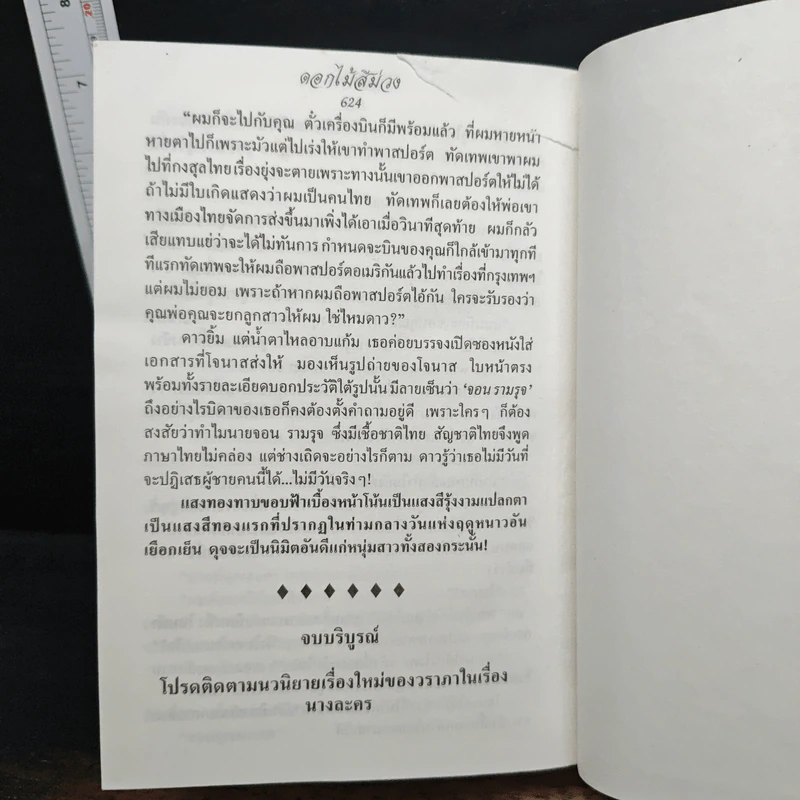 8
20
7
ดอกไม้สีม่วง
624
“ผมก็จะไปกับคุณ ตั๋วเครื่องบินก็มีพร้อมแล้ว ที่ผมหายหน้า
หายตาไปก็เพราะมัวแต่ไปเร่งให้เขาทำพาสปอร์ต ทัดเทพเขาพาผม
ไปที่กงสุลไทยเรื่องยุ่งจะตายเพราะทางนั้นเขาออกพาสปอร์ตให้ไม่ได้
ถ้าไม่มีใบเกิดแสดงว่าผมเป็นคนไทย ทัดเทพก็เลยต้องให้พ่อเขา
ทางเมืองไทยจัดการส่งขึ้นมาเพิ่งได้เอาเมื่อวินาทีสุดท้าย ผมก็กลัว
เสียแทบแย่ว่าจะได้ไม่ทันการ กำหนดจะบินของคุณก็ใกล้เข้ามาทุกที
ทีแรกทัดเทพจะให้ผมถือพาสปอร์ตอเมริกันแล้วไปทำเรื่องที่กรุงเทพฯ
แต่ผมไม่ยอม เพราะถ้าหากผมถือพาสปอร์ตไอ้กัน ใครจะรับรองว่า
คุณพ่อคุณจะยกลูกสาวให้ผม ใช่ไหมดาว?”
ดาวยิ้ม แต่น้ำตาไหลอาบแก้ม เธอค่อยบรรจงเปิดซองหนังใส่
เอกสารที่โจนาสส่งให้ มองเห็นรูปถ่ายของโจนาส ใบหน้าตรง
พร้อมทั้งรายละเอียดบอกประวัติใต้รูปนั้น มีลายเซ็นว่า ‘จอน รามรุจ’
ถึงอย่างไรบิดาของเธอก็คงต้องตั้งคำถามอยู่ดี เพราะใครๆ ก็ต้อง
สงสัยว่าทำไมนายจอน รามรุจ ซึ่งมีเชื้อชาติไทย สัญชาติไทยจึงพูด
ภาษาไทยไม่คล่อง แต่ช่างเถิดจะอย่างไรก็ตาม ดาวรู้ว่าเธอไม่มีวันที่
จะปฏิเสธผู้ชายคนนี้ได้...ไม่มีวันจริงๆ!
แสงทองทาบขอบฟ้าเบื้องหน้าโน้นเป็นแสงสีรุ้งงามแปลกตา
เป็นแสงสีทองแรกที่ปรากฏในท่ามกลางวันแห่งฤดูหนาวอัน
เยือกเย็น ดุจจะเป็นนิมิตอันดีแก่หนุ่มสาวทั้งสองกระนั้น!
♦ ♦ ♦ ♦ ♦ ♦
จบบริบูรณ์
โปรดติดตามนวนิยายเรื่องใหม่ของวราภาในเรื่อง
นางละคร